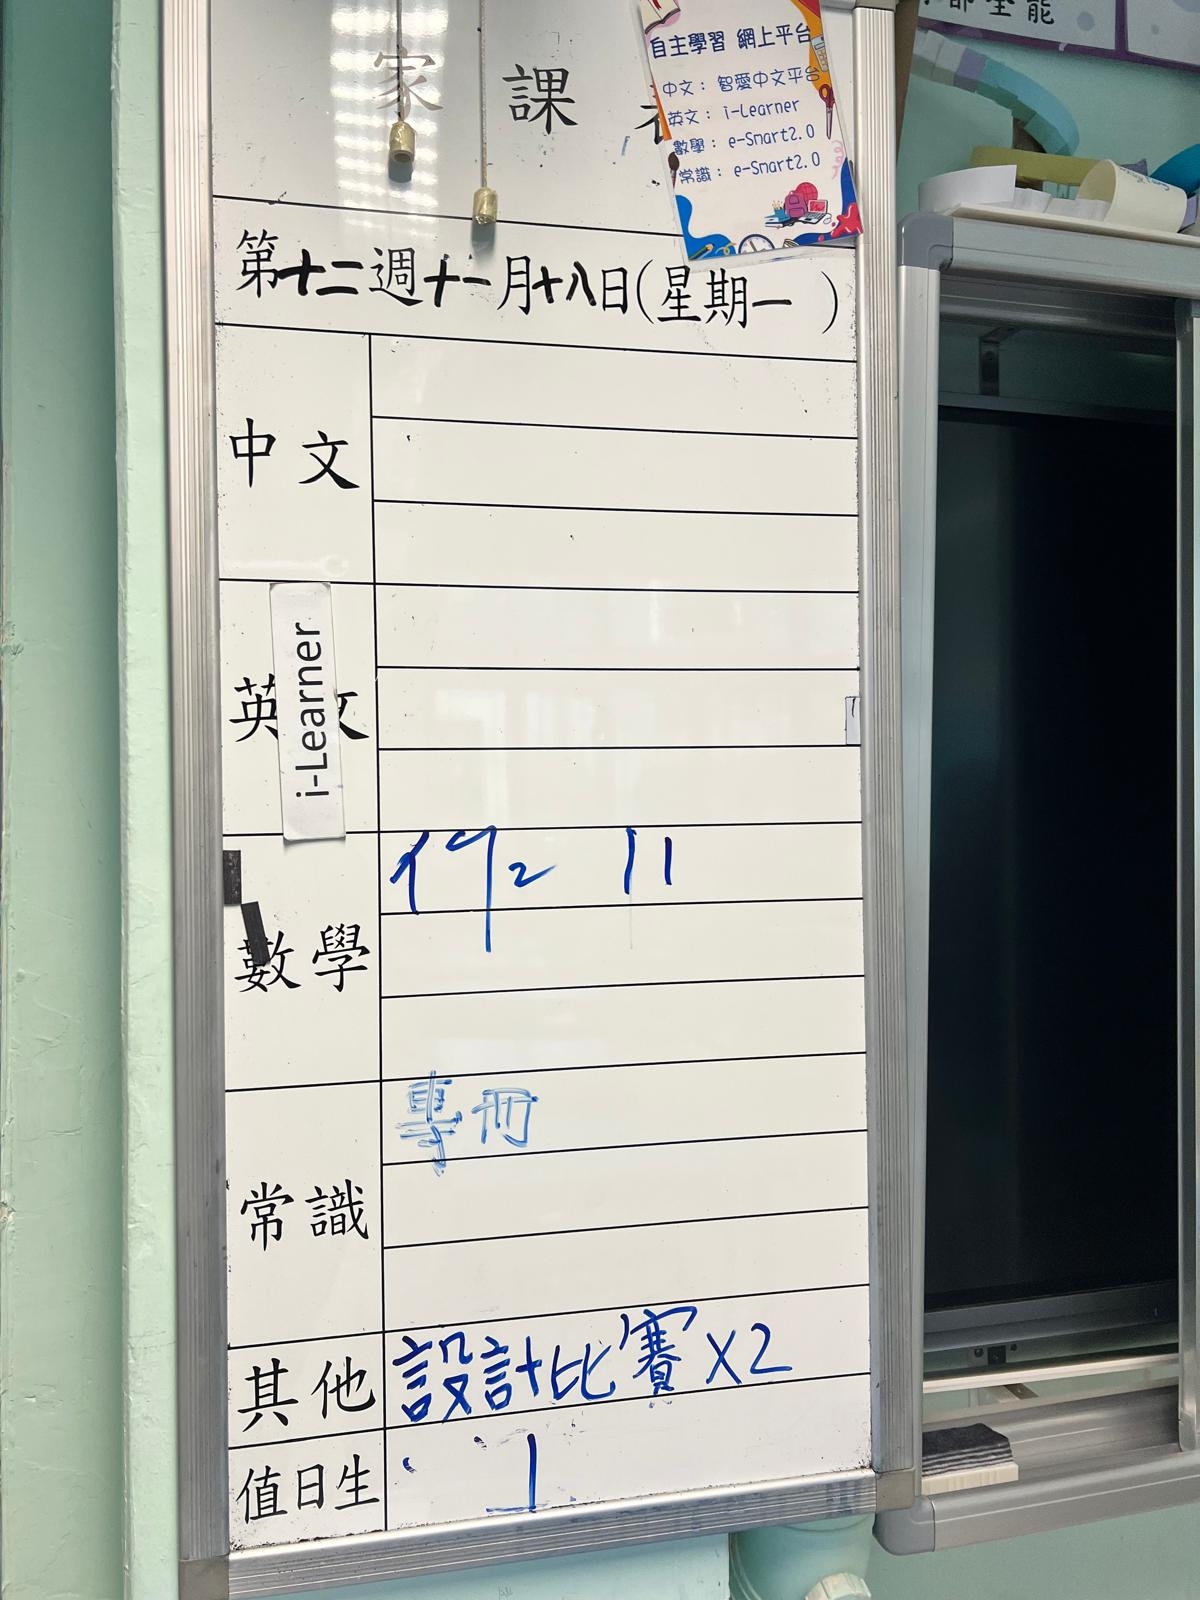 家課
自主學習 網上平台
中文： 智愛中文平台
英文： i-Learner
數學： e-Smart2.0
常識： e-Smart2.0
第十二週十一月十八日(星期一 )
中文
英文
i-Learner
數學
11
常識 專冊
其他 設計比賽 X2
值日生